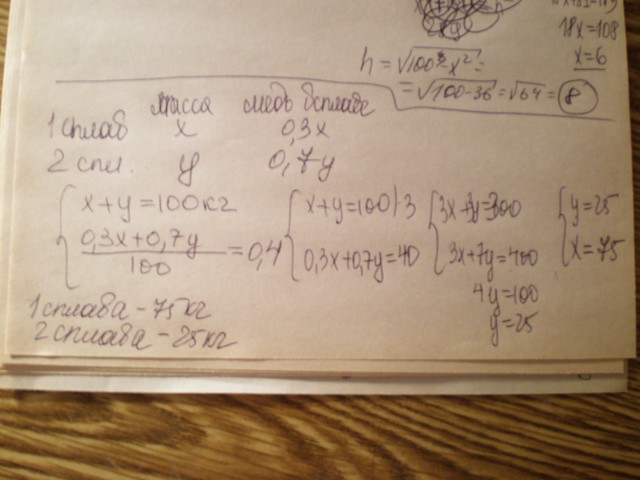 18x=108
x=6
h = √100-x² =
= √100-36 = √64 = 8
масса медь в сплаве
1 сплав x 0,3x
2 спл. y 0,7y
x+y=100кг
0,3x+0,7y
100
=0,4
x+y=100|·3
0,3x+0,7y=40
3x+3y=300
3x+7y=400
4y=100
y=25
y=25
x=75
1 сплава - 75 кг
2 сплава - 25 кг